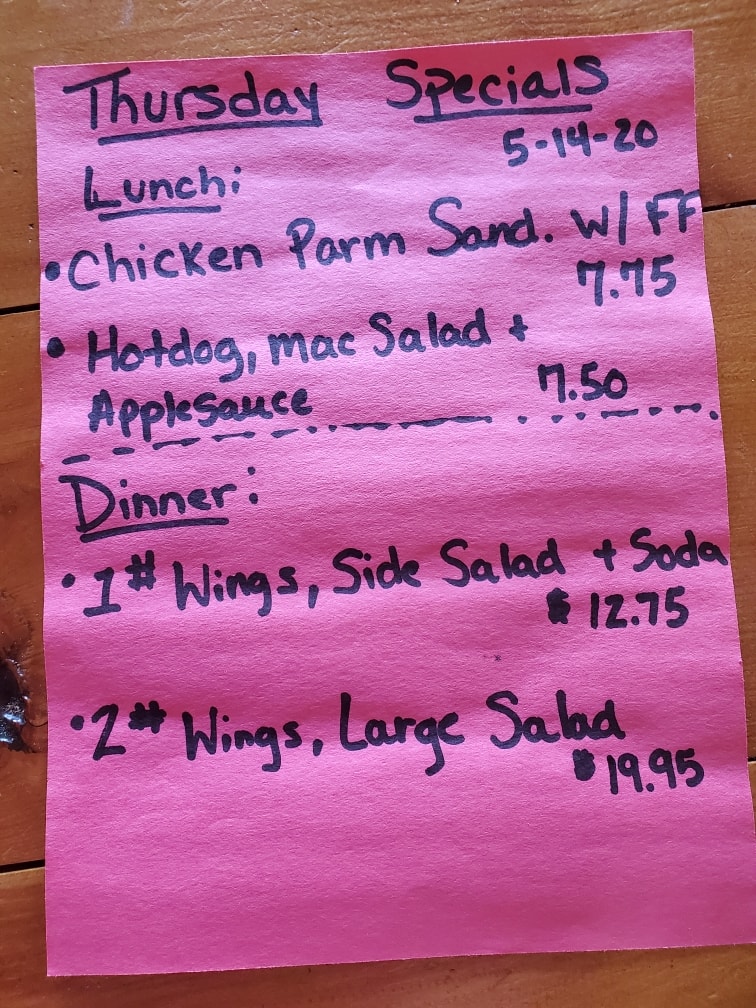 Thursday Specials
5-14-20
Lunch:
• Chicken Parm Sand. W/ FF
7.75
• Hotdog, mac Salad +
Applesauce 7.50
Dinner:
• 1# Wings, Side Salad + Soda
$12.75
• 2# Wings, Large Salad
$19.95